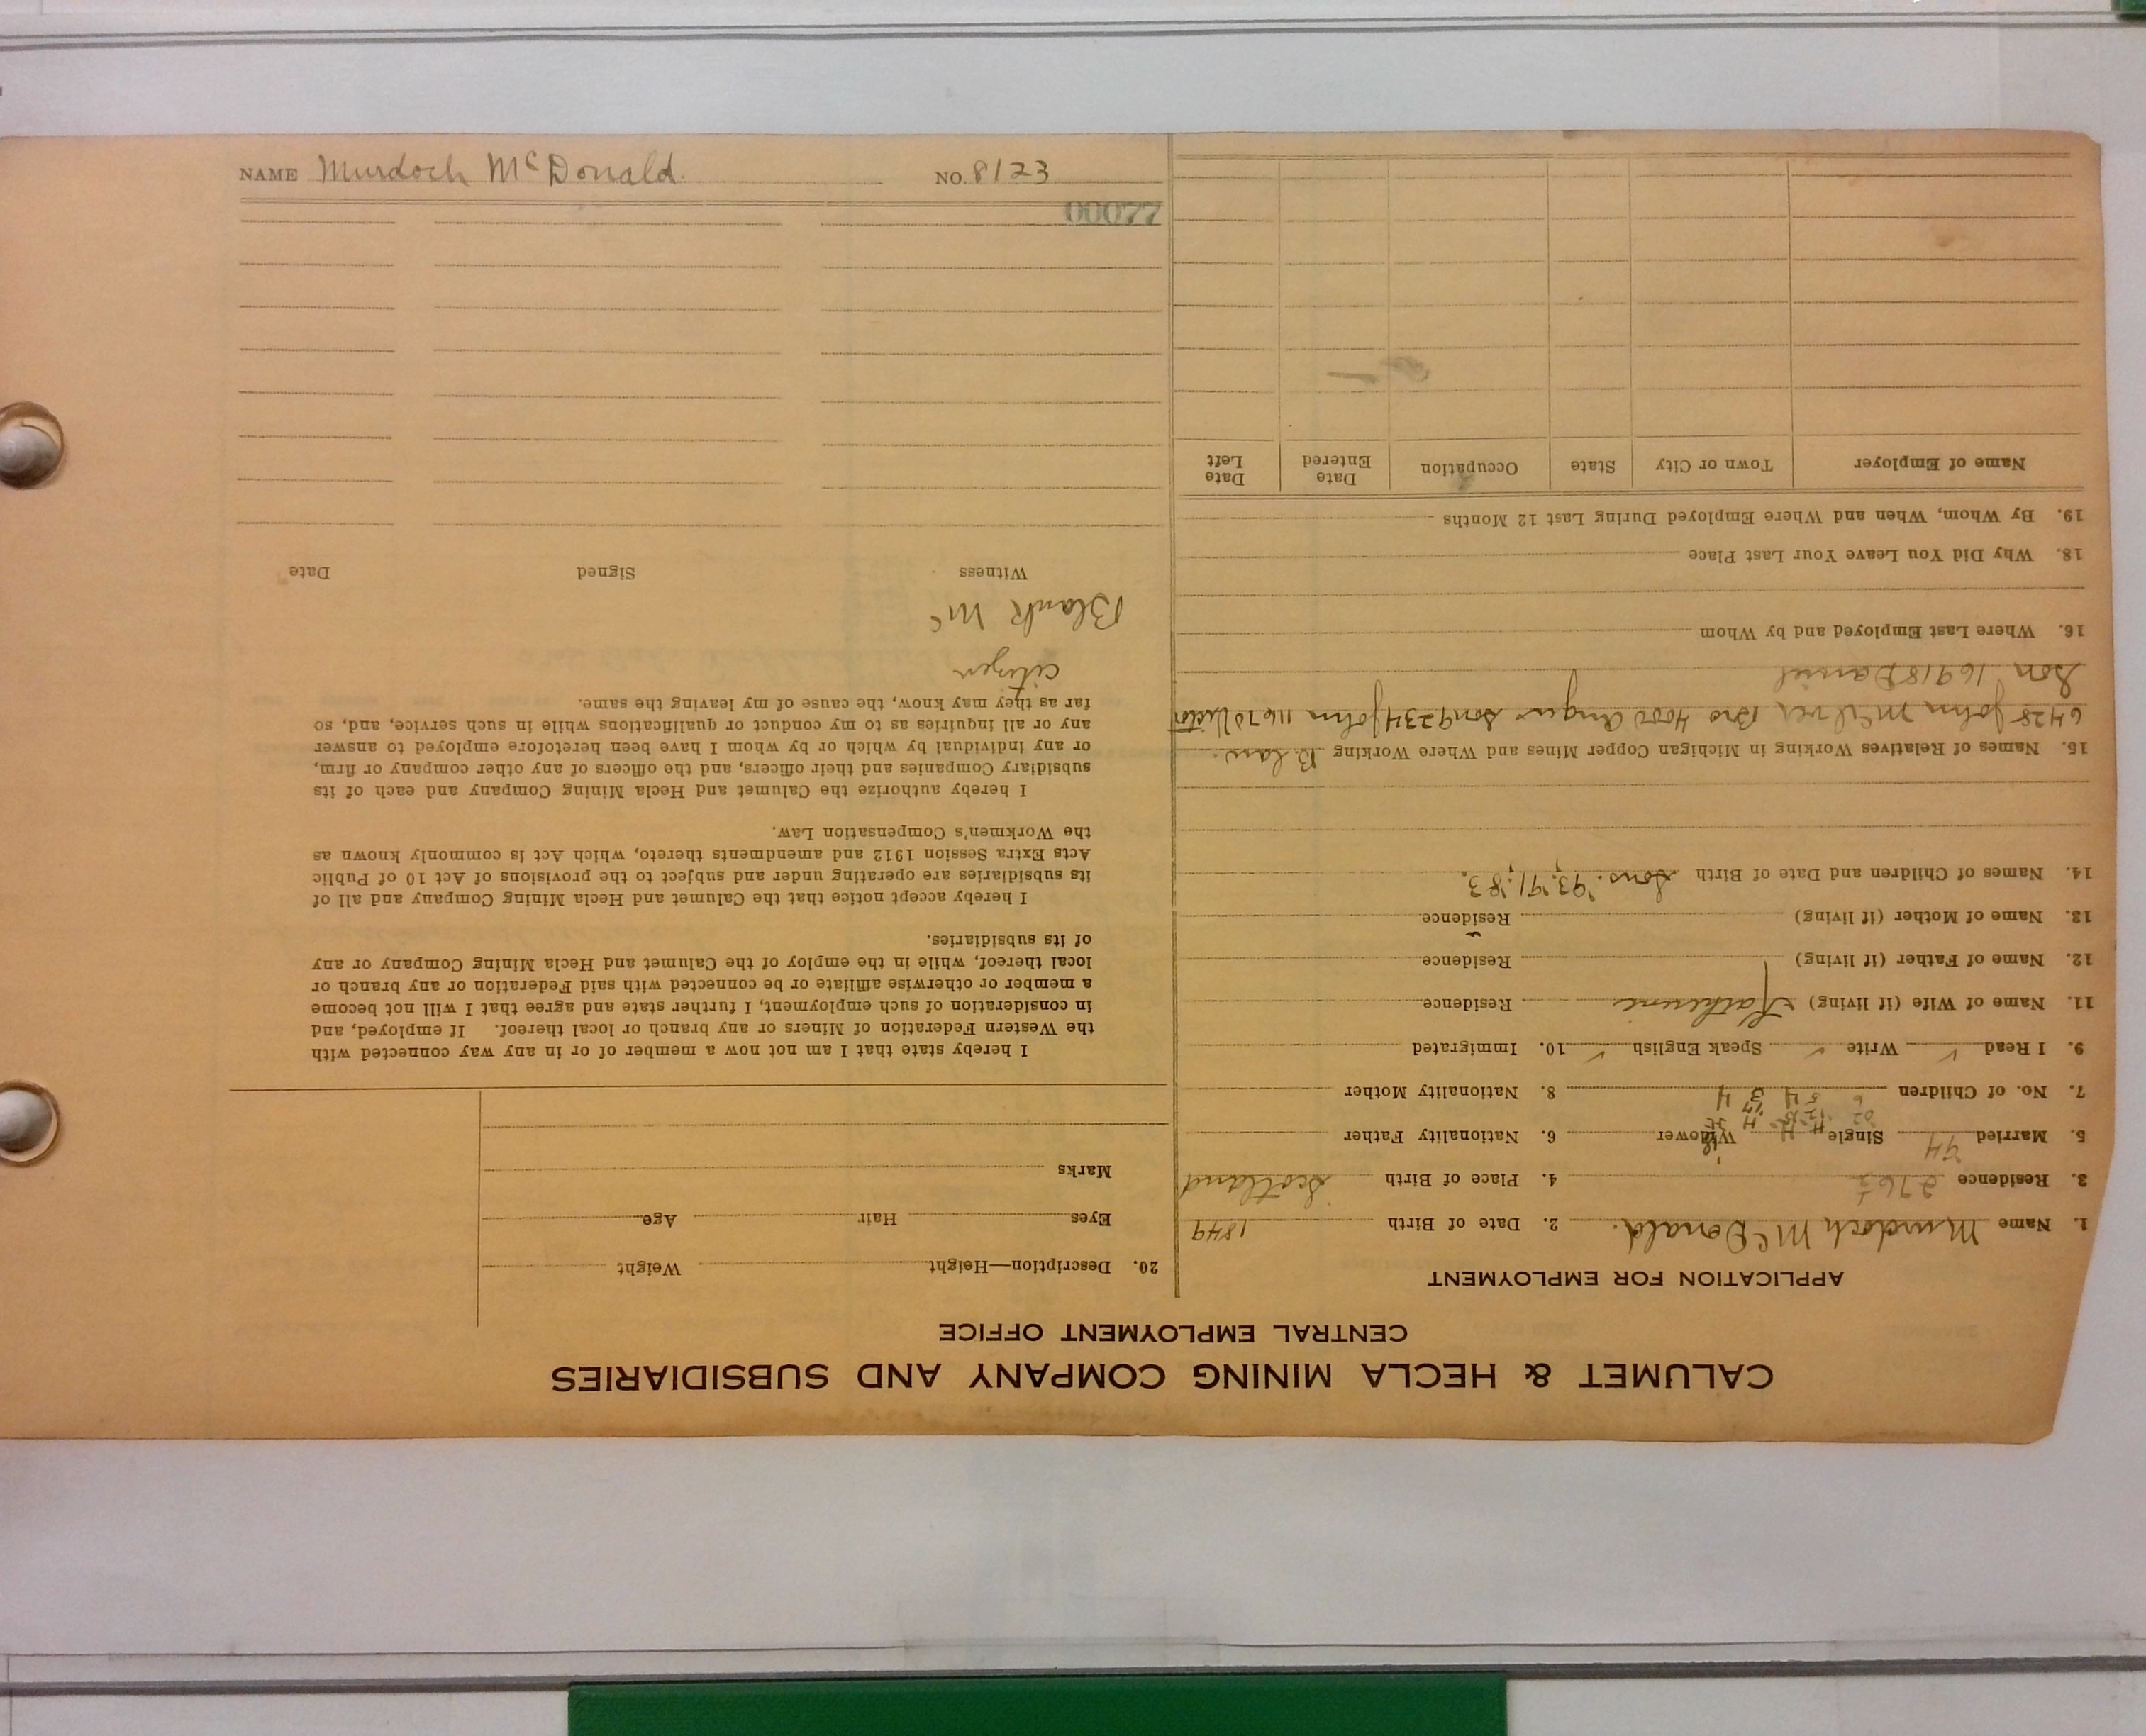 CALUMET & HECLA MINING COMPANY AND SUBSIDIARIES
CENTRAL EMPLOYMENT OFFICE
APPLICATION FOR EMPLOYMENT
1. Name Murdoch McDonald. 2. Date of Birth 1849
3. Residence 2761/2 4. Place of Birth Scotland
5. Married Single Widower 6. Nationality Father
7. No. of Children 8. Nationality Mother
9. I Read ✓ Write ✓ Speak English ✓ 10. Immigrated
11. Name of Wife (if living) Katherine Residence
12. Name of Father (if living) Residence
13. Name of Mother (if living) Residence
14. Names of Children and Date of Birth Sons: '93; '91; '83.
15. Names of Relatives Working in Michigan Copper Mines and Where Working B. law.
6428 John McIver Bro 4000 Angus Son 9234 John 11670 Victor
Son 16918 Daniel
16. Where Last Employed and by Whom
18. Why Did You Leave Your Last Place
19. By Whom, When and Where Employed During Last 12 Months
Name of Employer Town or City State Occupation Date Entered Date Left
20. Description—Height Weight
Eyes Hair Age
Marks
I hereby state that I am not now a member of or in any way connected with
the Western Federation of Miners or any branch or local thereof. If employed, and
in consideration of such employment, I further state and agree that I will not become
a member or otherwise affiliate or be connected with said Federation or any branch or
local thereof, while in the employ of the Calumet and Hecla Mining Company or any
of its subsidiaries.
I hereby accept notice that the Calumet and Hecla Mining Company and all of
its subsidiaries are operating under and subject to the provisions of Act 10 of Public
Acts Extra Session 1912 and amendments thereto, which Act is commonly known as
the Workmen's Compensation Law.
I hereby authorize the Calumet and Hecla Mining Company and each of its
subsidiary Companies and their officers, and the officers of any other company or firm,
or any individual by which or by whom I have been heretofore employed to answer
any or all inquiries as to my conduct or qualifications while in such service, and, so
far as they may know, the cause of my leaving the same.
citizen
Blank Mc
Witness Signed Date
00077
NAME Murdoch McDonald. NO. 8123